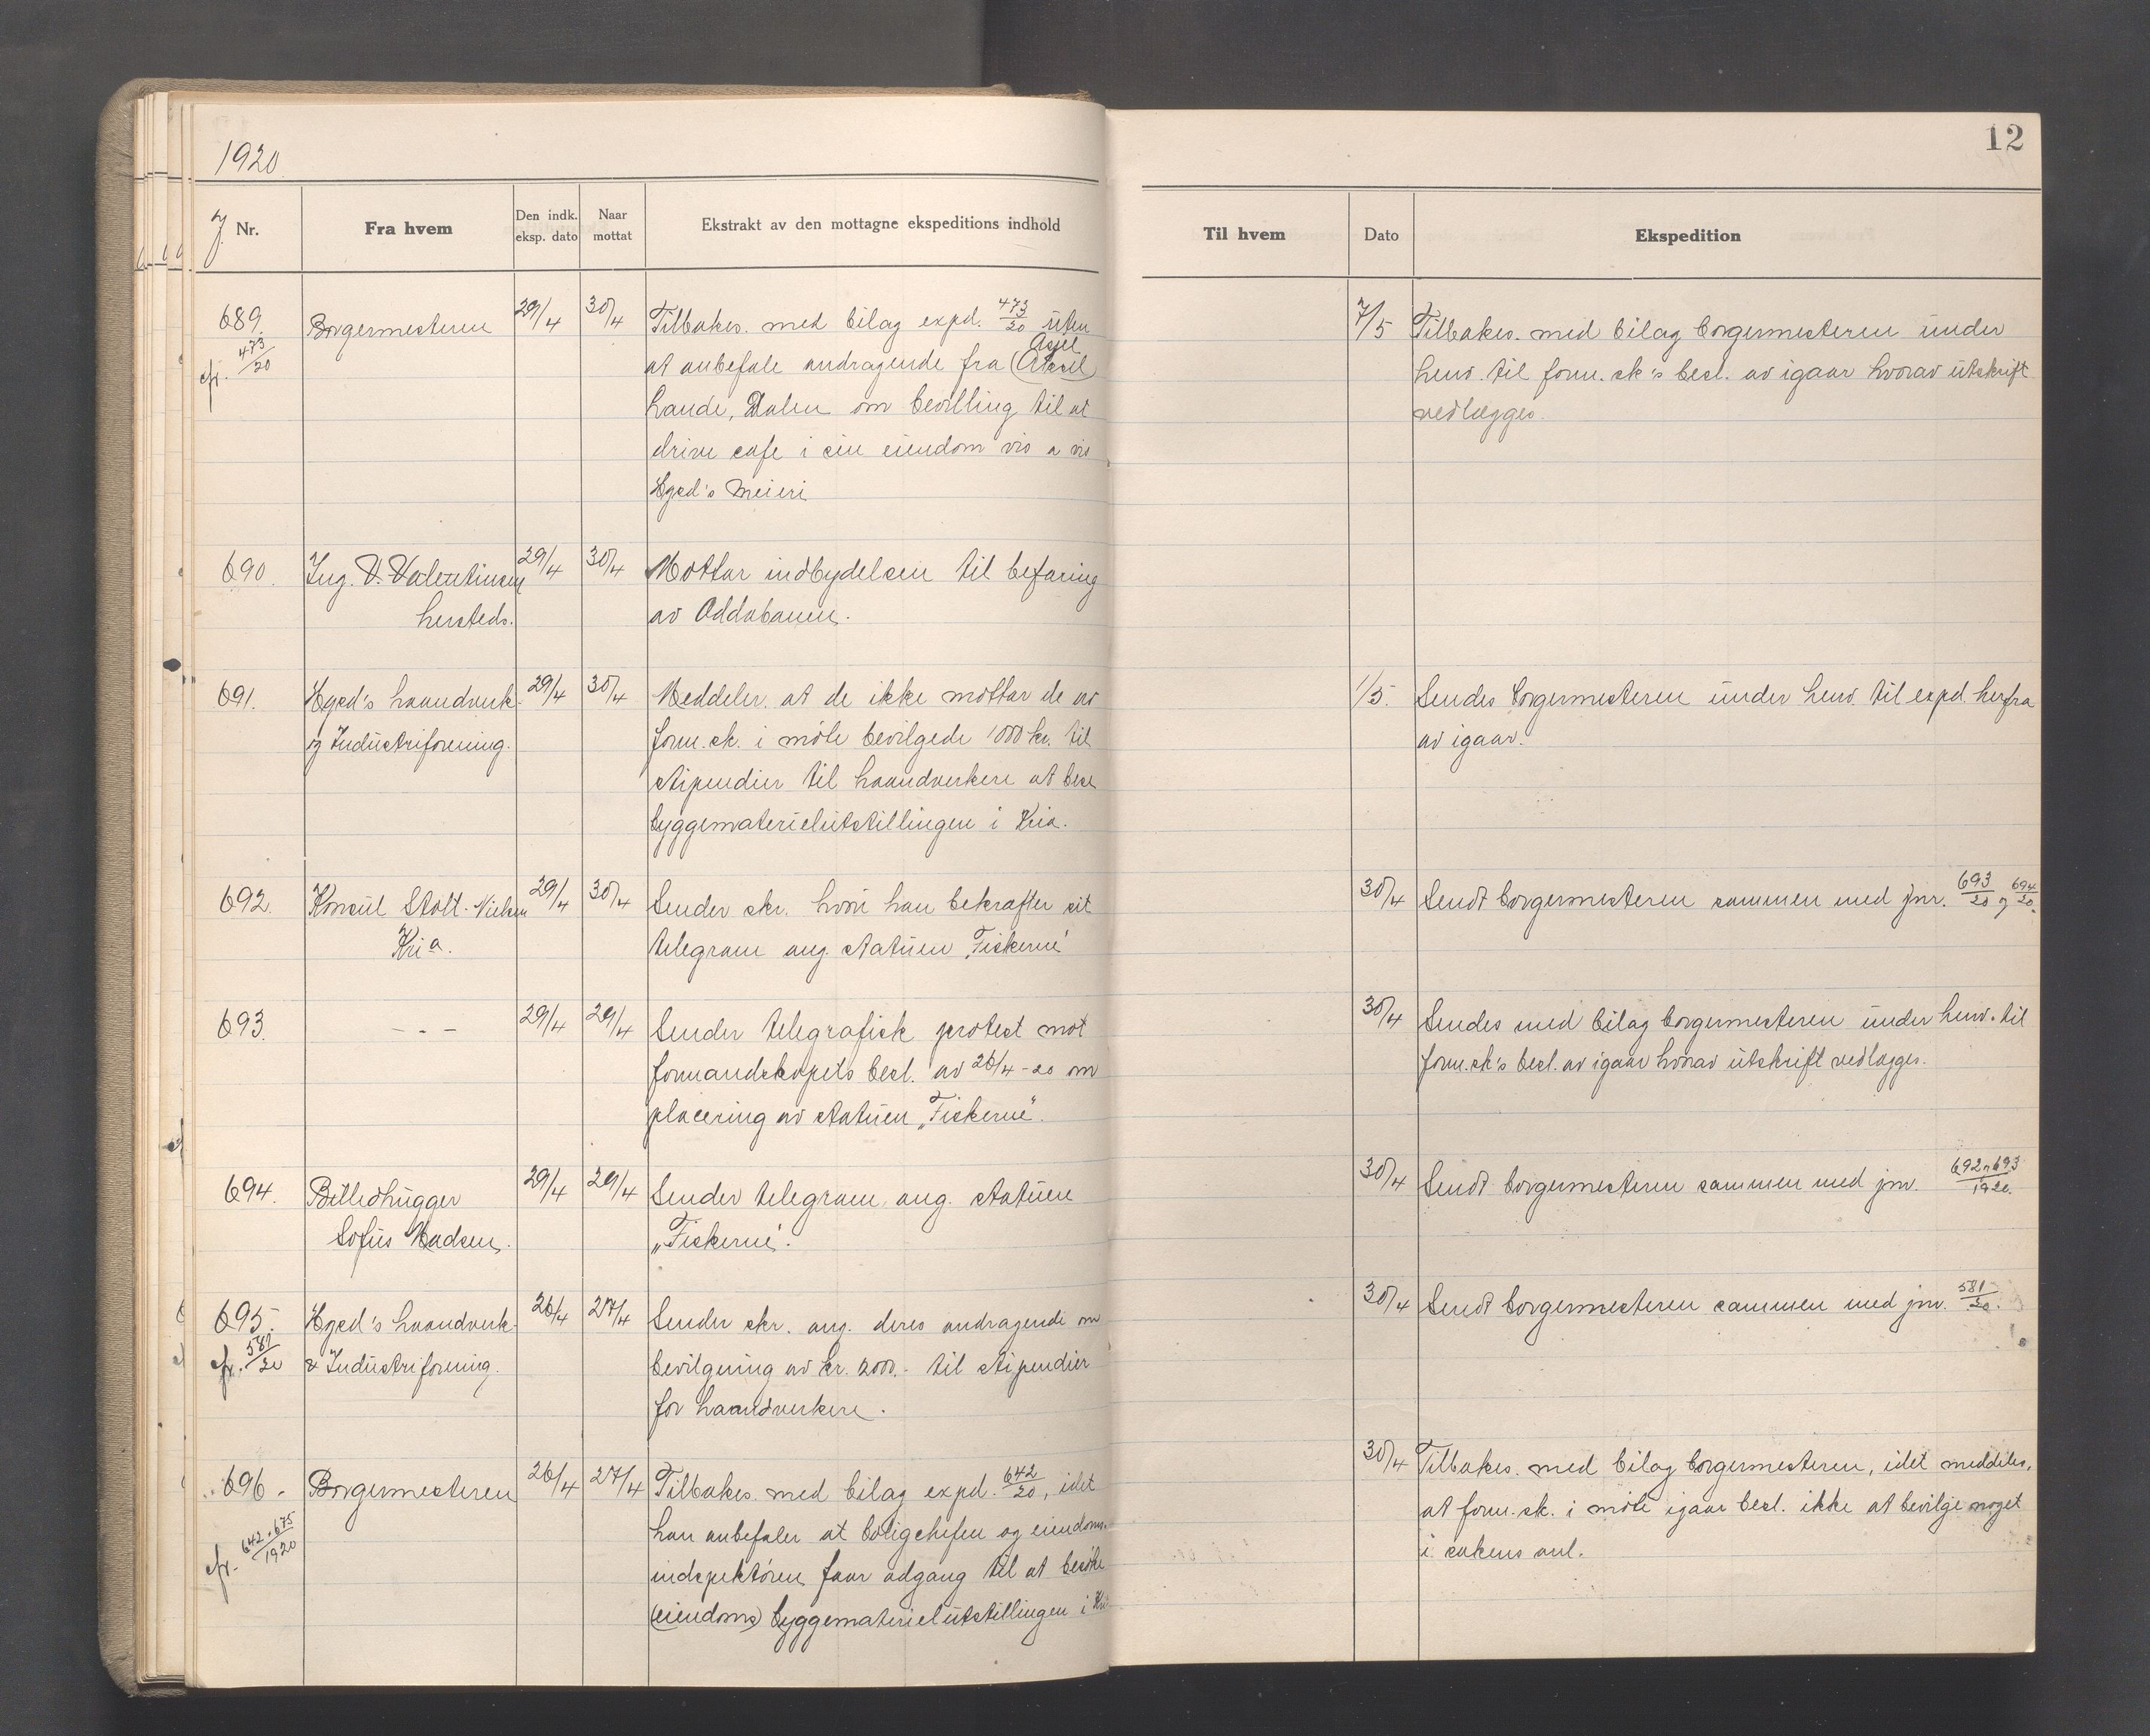 1920.
12
J. Nr.
Fra hvem
Den indk. eksp. dato
Naar mottat
Ekstrakt av den mottagne ekspeditions indhold
Til hvem
Dato
Ekspedition
689.
cfr. 473/20
Borgermesteren
29/4
30/4
Tilbakes. med bilag expd. 473/20 uten
at anbefale andragende fra (Aksel) Axel
Hande, Dalen om bevilling til at
drive cafe i sin eiendom vis a vis
Hgsd's Meieri
7/5
Tilbakes. med bilag borgermesteren under
henv. til form.sk's besl. av igaar hvorav utskrift
vedlægges.
690.
Ing. V. Valentinsen
hersteds.
29/4
30/4
Mottar indbydelsen til befaring
av Oddabanen.
691.
Hgsd's haandverk
og Industriforening.
29/4
30/4
Meddeler at de ikke mottar de av
form.sk. i møte bevilgede 1000 kr. til
stipendier til haandverkere at bese
byggematerielutstillingen i Kria.
1/5.
Sendes borgermesteren under henv. til expd. herfra
av igaar.
692.
Konsul Stolt-Nielsen
Kria.
29/4
30/4
Sender skr. hvori han bekræfter sit
telegram ang. statuen „Fiskerne"
30/4
Sendt borgermesteren sammen med jnr. 693/20 og 694/20.
693.
- - -
29/4
29/4
Sender telegrafisk protest mot
formandskapets besl. av 26/4-20 om
placering av statuen „Fiskerne".
30/4
Sendes med bilag borgermesteren under henv. til
form.sk's besl. av igaar hvorav utskrift vedlægges.
694.
Billedhugger
Sofus Madsen.
29/4
29/4
Sender telegram ang. statuen
„Fiskerne".
30/4
Sendt borgermesteren sammen med jnr. 692 og 693/1920.
695.
cfr. 581/20
Hgsd's haandverk-
& Industriforening.
26/4
27/4
Sender skr. ang. deres andragende om
bevilgning av kr. 2000.- til stipendier
for haandverkere.
30/4
Sendt borgermesteren sammen med jnr. 581/20.
696.
cfr. 642+675/1920
Borgermesteren
26/4
27/4
Tilbakes. med bilag expd. 642/20, idet
han anbefaler at boligchefen og eiendoms-
inspektøren faar adgang til at besøke
(eiendoms) byggematerielutstillingen i Kria
30/4
Tilbakes. med bilag borgermesteren, idet meddeles,
at form.sk. i møte igaar besl. ikke at bevilge noget
i sakens anl.